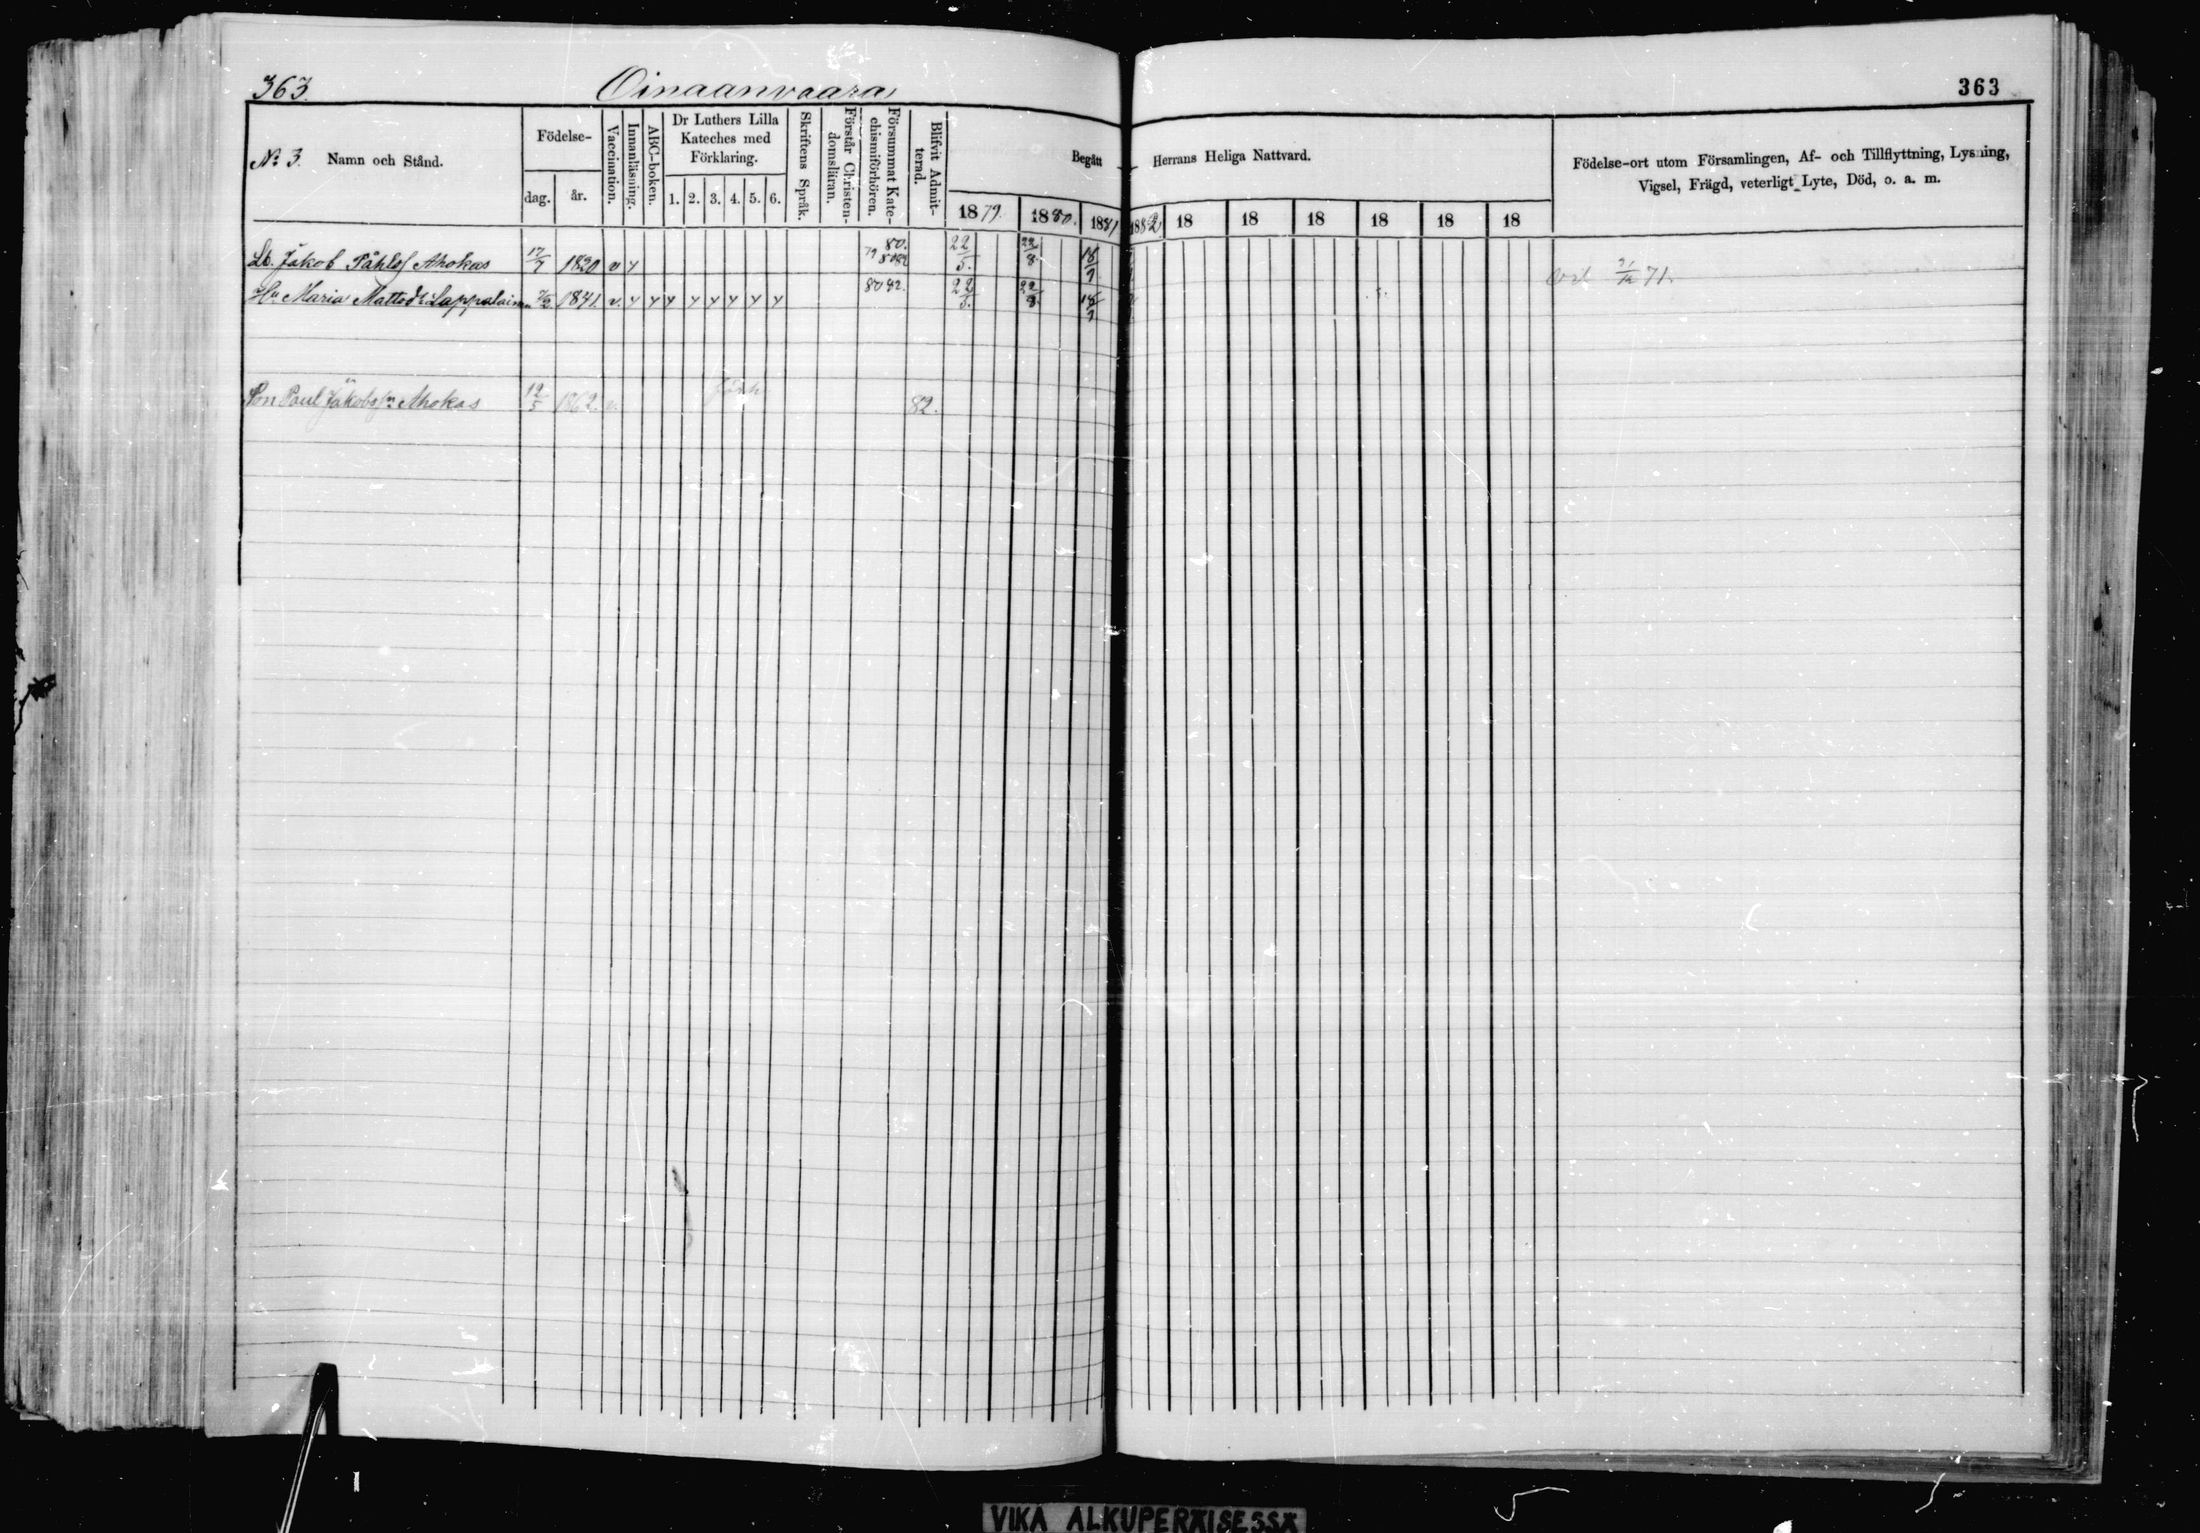 363. Oinaanvaara 363
No 3. Namn och Stånd.
Födelse-
dag. år.
Vaccination.
Innanläsning.
ABC-boken.
Dr Luthers Lilla
Kateches med
Förklaring.
1. 2. 3. 4. 5. 6.
Skriftens Språk.
Förstår Christen-
domsläran.
Försummat Kate-
chismiförhören.
Blifvit Admit-
terad.
Begått Herrans Heliga Nattvard.
1879. 1880. 1881 1882. 18 18 18 18 18 18
Födelse-ort utom Församlingen, Af- och Tillflyttning, Lysning,
Vigsel, Frägd, veterligt Lyte, Död, o. a. m.
Lb. Jakob Påhls Ahokas 17/7 1820 v y 79 80. 22/5. 22/8 18/7
Hu Maria Mattsdr Lappalainen 1841. v. y y y y y y y y 80 82. 22/5. 22/8. 18/7
71.
Son Paul Jakobsn Ahokas 12/5 1862. v. 82.
VIKA ALKUPERÄISESSÄ